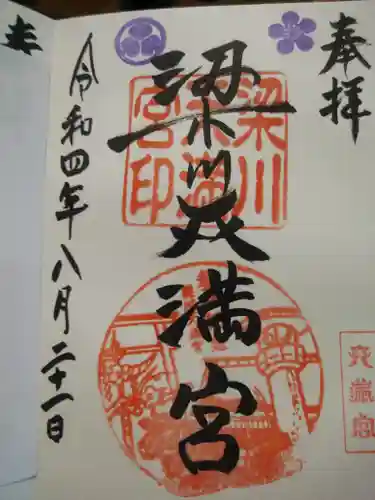 奉拝
梁川天満宮
梁川天満宮印
天満宮
令和四年八月二十一日